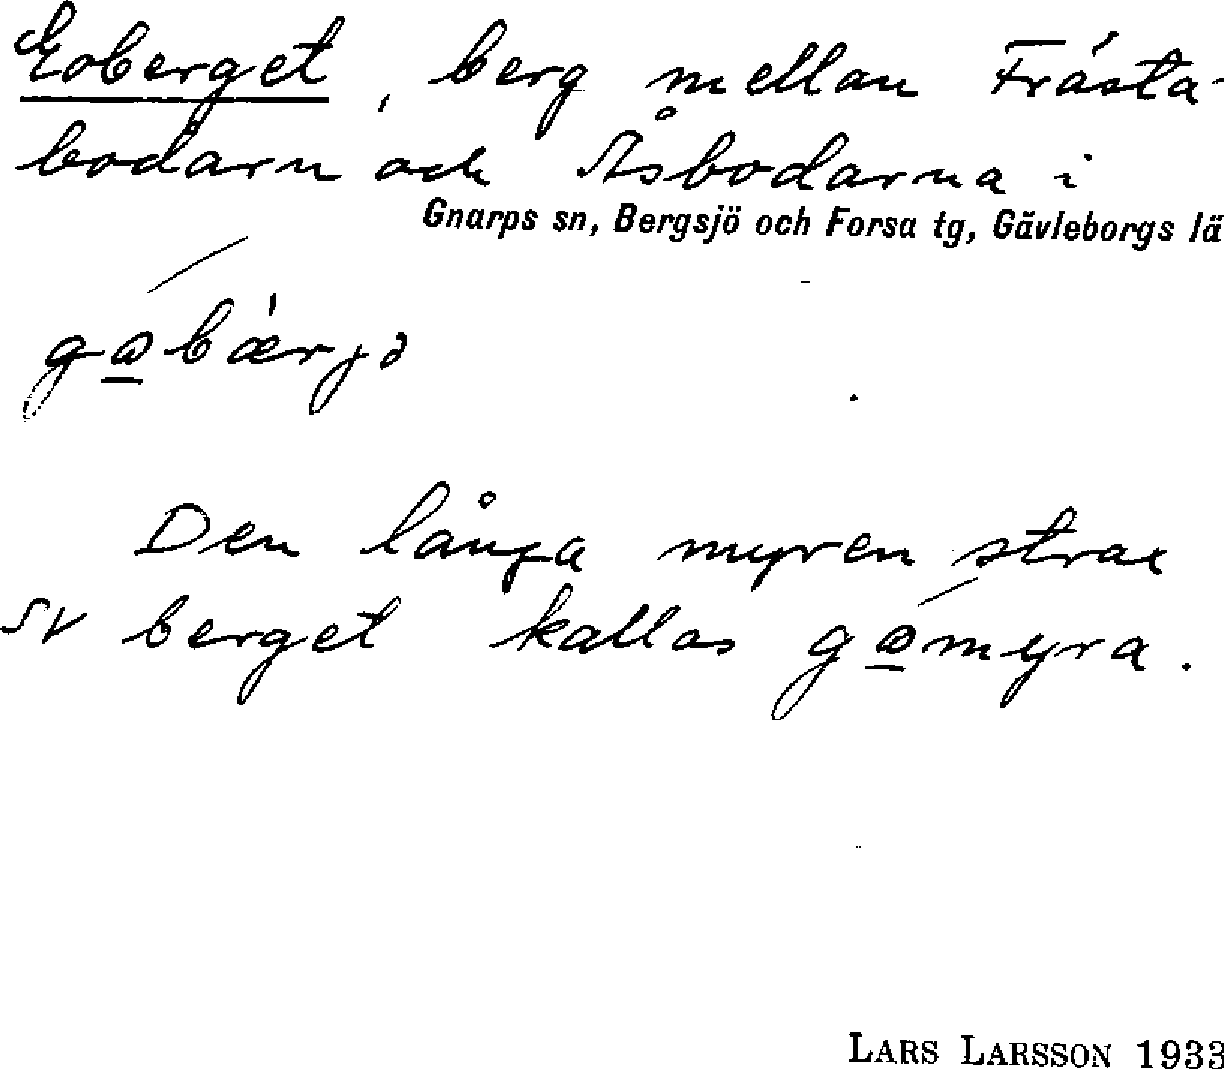 berg mellan Frästa-
bodarn och Åsbodarna i
Gnarps sn, Bergsjö och Forsa tg, Gävleborgs lä
Den långa myren strax
berget kallas
LARS LARSSON 1933